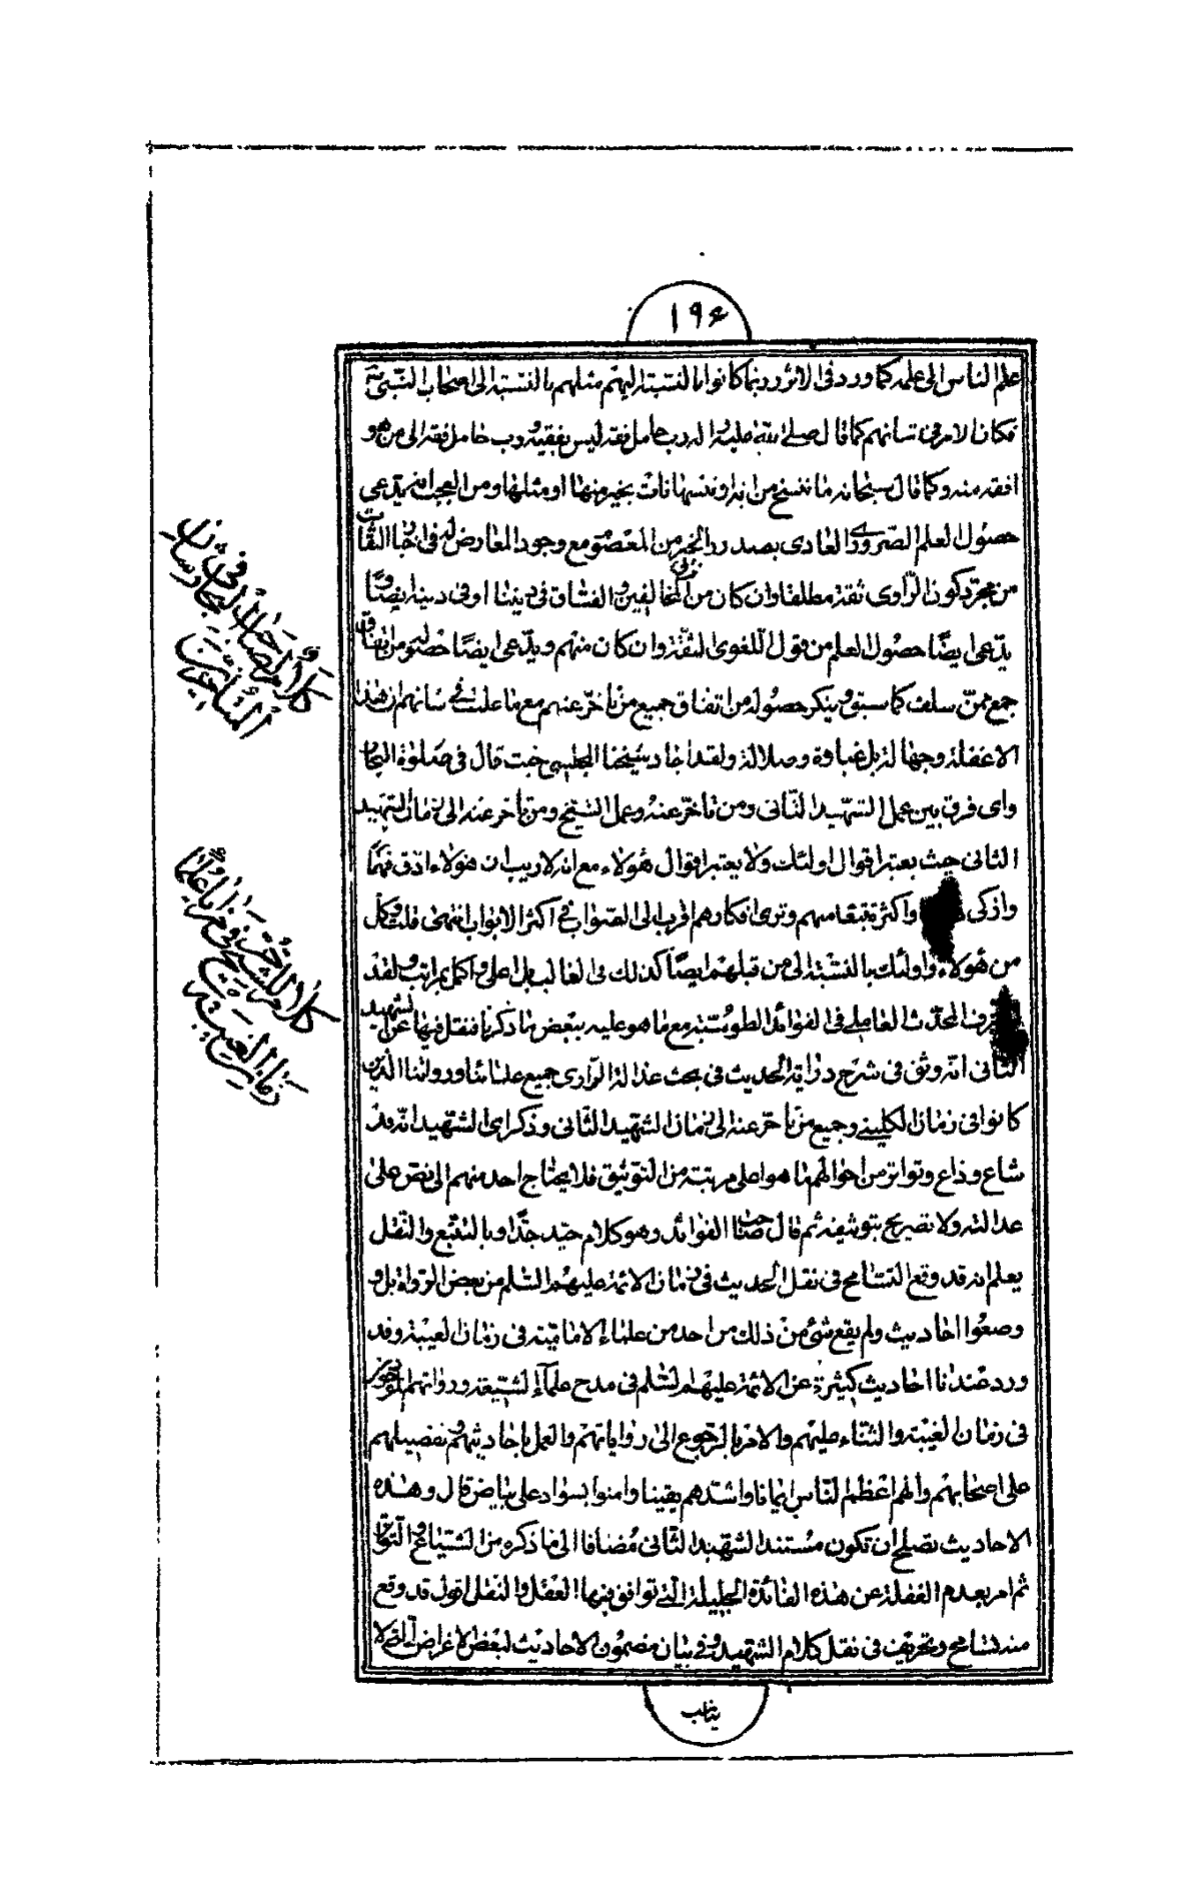 ١٩٤
علم الناس الى علمه كما ورد فى الاثر وربما كانوا بالنسبة اليهم مثلهم بالنسبة الى اصحاب النبى
فكان الامر فى شانهم كما قال صلى الله عليه واله رب حامل فقه ليس بفقيه ورب حامل فقه الى من هو
افقه منه وكما قال سبحانه ما ننسخ من اية او ننسها نات بخير منها او مثلها ومن العجب انه يدعى
حصول العلم الضرورى العادى بصدور الخبر من المعصوم مع وجود المعارض له فى اخبار الثقات
من مجرد كون الراوى ثقة مطلقا وان كان من المخالفين والفساق فى ديننا او فى دينه ايضا و
يدعى ايضا حصول العلم من قول اللغوى الثقة وان كان منهم ويدعى ايضا حصوله من اتفاق
جمع ممن سلف كما سبق وينكر حصوله من اتفاق جميع من تاخر عنهم مع ما علمت فى شانهم ان هذا
الا غفلة وجهالة بل غباوة وضلالة ولقد اجاد شيخنا المجلسى حيث قال فى صلوة البحار
واى فرق بين عمل الشهيد الثانى ومن تاخر عنه وعمل الشيخ ومن تاخر عنه الى زمان الشهيد
الثانى حيث يعتبر اقوال اولئك ولا يعتبر اقوال هؤلاء مع انه لا ريب ان هؤلاء ادق فهما
واذكى واكثر تتبعا منهم وترى افكارهم اقرب الى الصواب فى اكثر الابواب انتهى قلت وكل
من هؤلاء واولئك بالنسبة الى من قبلهم ايضا كذلك فى الغالب بل اعلى واكمل بمراتب ولقد
المحدث العاملى فى الفوائد الطوسية مع ما هو عليه ببعض ما ذكرنا فنقل فيها عن الشهيد
الثانى انه وثق فى شرح دراية الحديث فى بحث عدالة الراوى جميع علمائنا ورواتنا الذين
كانوا فى زمان الكلينى وجميع من تاخر عنه الى زمان الشهيد الثانى وذكر اى الشهيد انه قد
شاع وذاع وتواتر من احوالهم ما هو اعلى مرتبة من التوثيق فلا يحتاج احد منهم الى نص على
عدالته ولا تصريح بتوثيقه ثم قال صاحب الفوائد وهو كلام جيد جدا وبالتتبع والنقل
يعلم انه قد وقع التسامح فى نقل الحديث فى زمان الائمة عليهم السلم من بعض الرواة بل و
وضعوا احاديث ولم يقع شئ من ذلك من احد من علماء الامامية فى زمان الغيبة وقد
ورد عندنا احاديث كثيرة عن الائمة عليهم السلم فى مدح علماء الشيعة ورواتهم الموجودين
فى زمان الغيبة والثناء عليهم والامر بالرجوع الى رواياتهم والعمل باحاديثهم وتفضيلهم
على اصحابهم وانهم اعظم الناس ايمانا واشدهم يقينا وامنوا بسواد على بياض قال وهذه
الاحاديث تصلح ان تكون مستند الشهيد الثانى مضافا الى ما ذكره من الشياع والتواتر
ثم امر بعدم الغفلة عن هذه الفائدة الجليلة التى توافق فيها العقل والنقل اقول قد وقع
منه تسامح وتحريف فى نقل كلام الشهيد وفى بيان مضمون الاحاديث لبعض الاغراض التى لا
يناسب
كلام صاحب البحار فى شان
المتاخرين
كلام للشيخ الحر فى مزايا علماء
زمان الغيبة